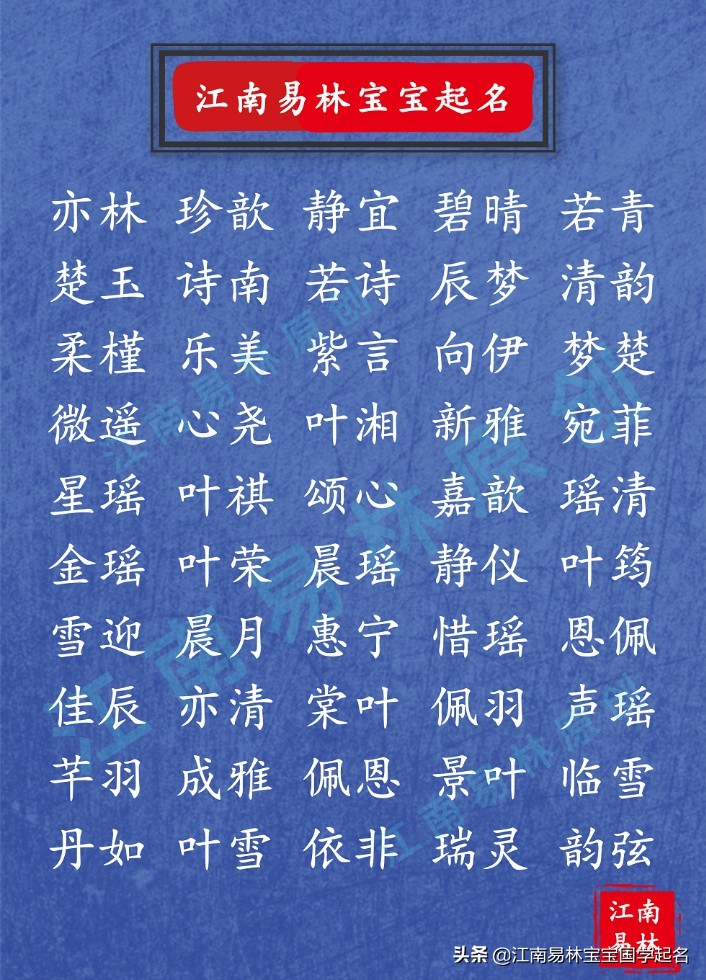 江南易林宝宝起名
亦林 珍歆 静宜 碧晴 若青
楚玉 诗南 若诗 辰梦 清韵
柔槿 乐美 紫言 向伊 梦楚
微遥 心尧 叶湘 新雅 宛菲
星瑶 叶祺 颂心 嘉歆 瑶清
金瑶 叶荣 晨瑶 静仪 叶筠
雪迎 晨月 惠宁 惜瑶 恩佩
佳辰 亦清 棠叶 佩羽 声瑶
芊羽 成雅 佩恩 景叶 临雪
丹如 叶雪 依非 瑞灵 韵弦
江南易林原创
江南易林原创
江南易林原创
江南
易林
头条 @江南易林宝宝国学起名